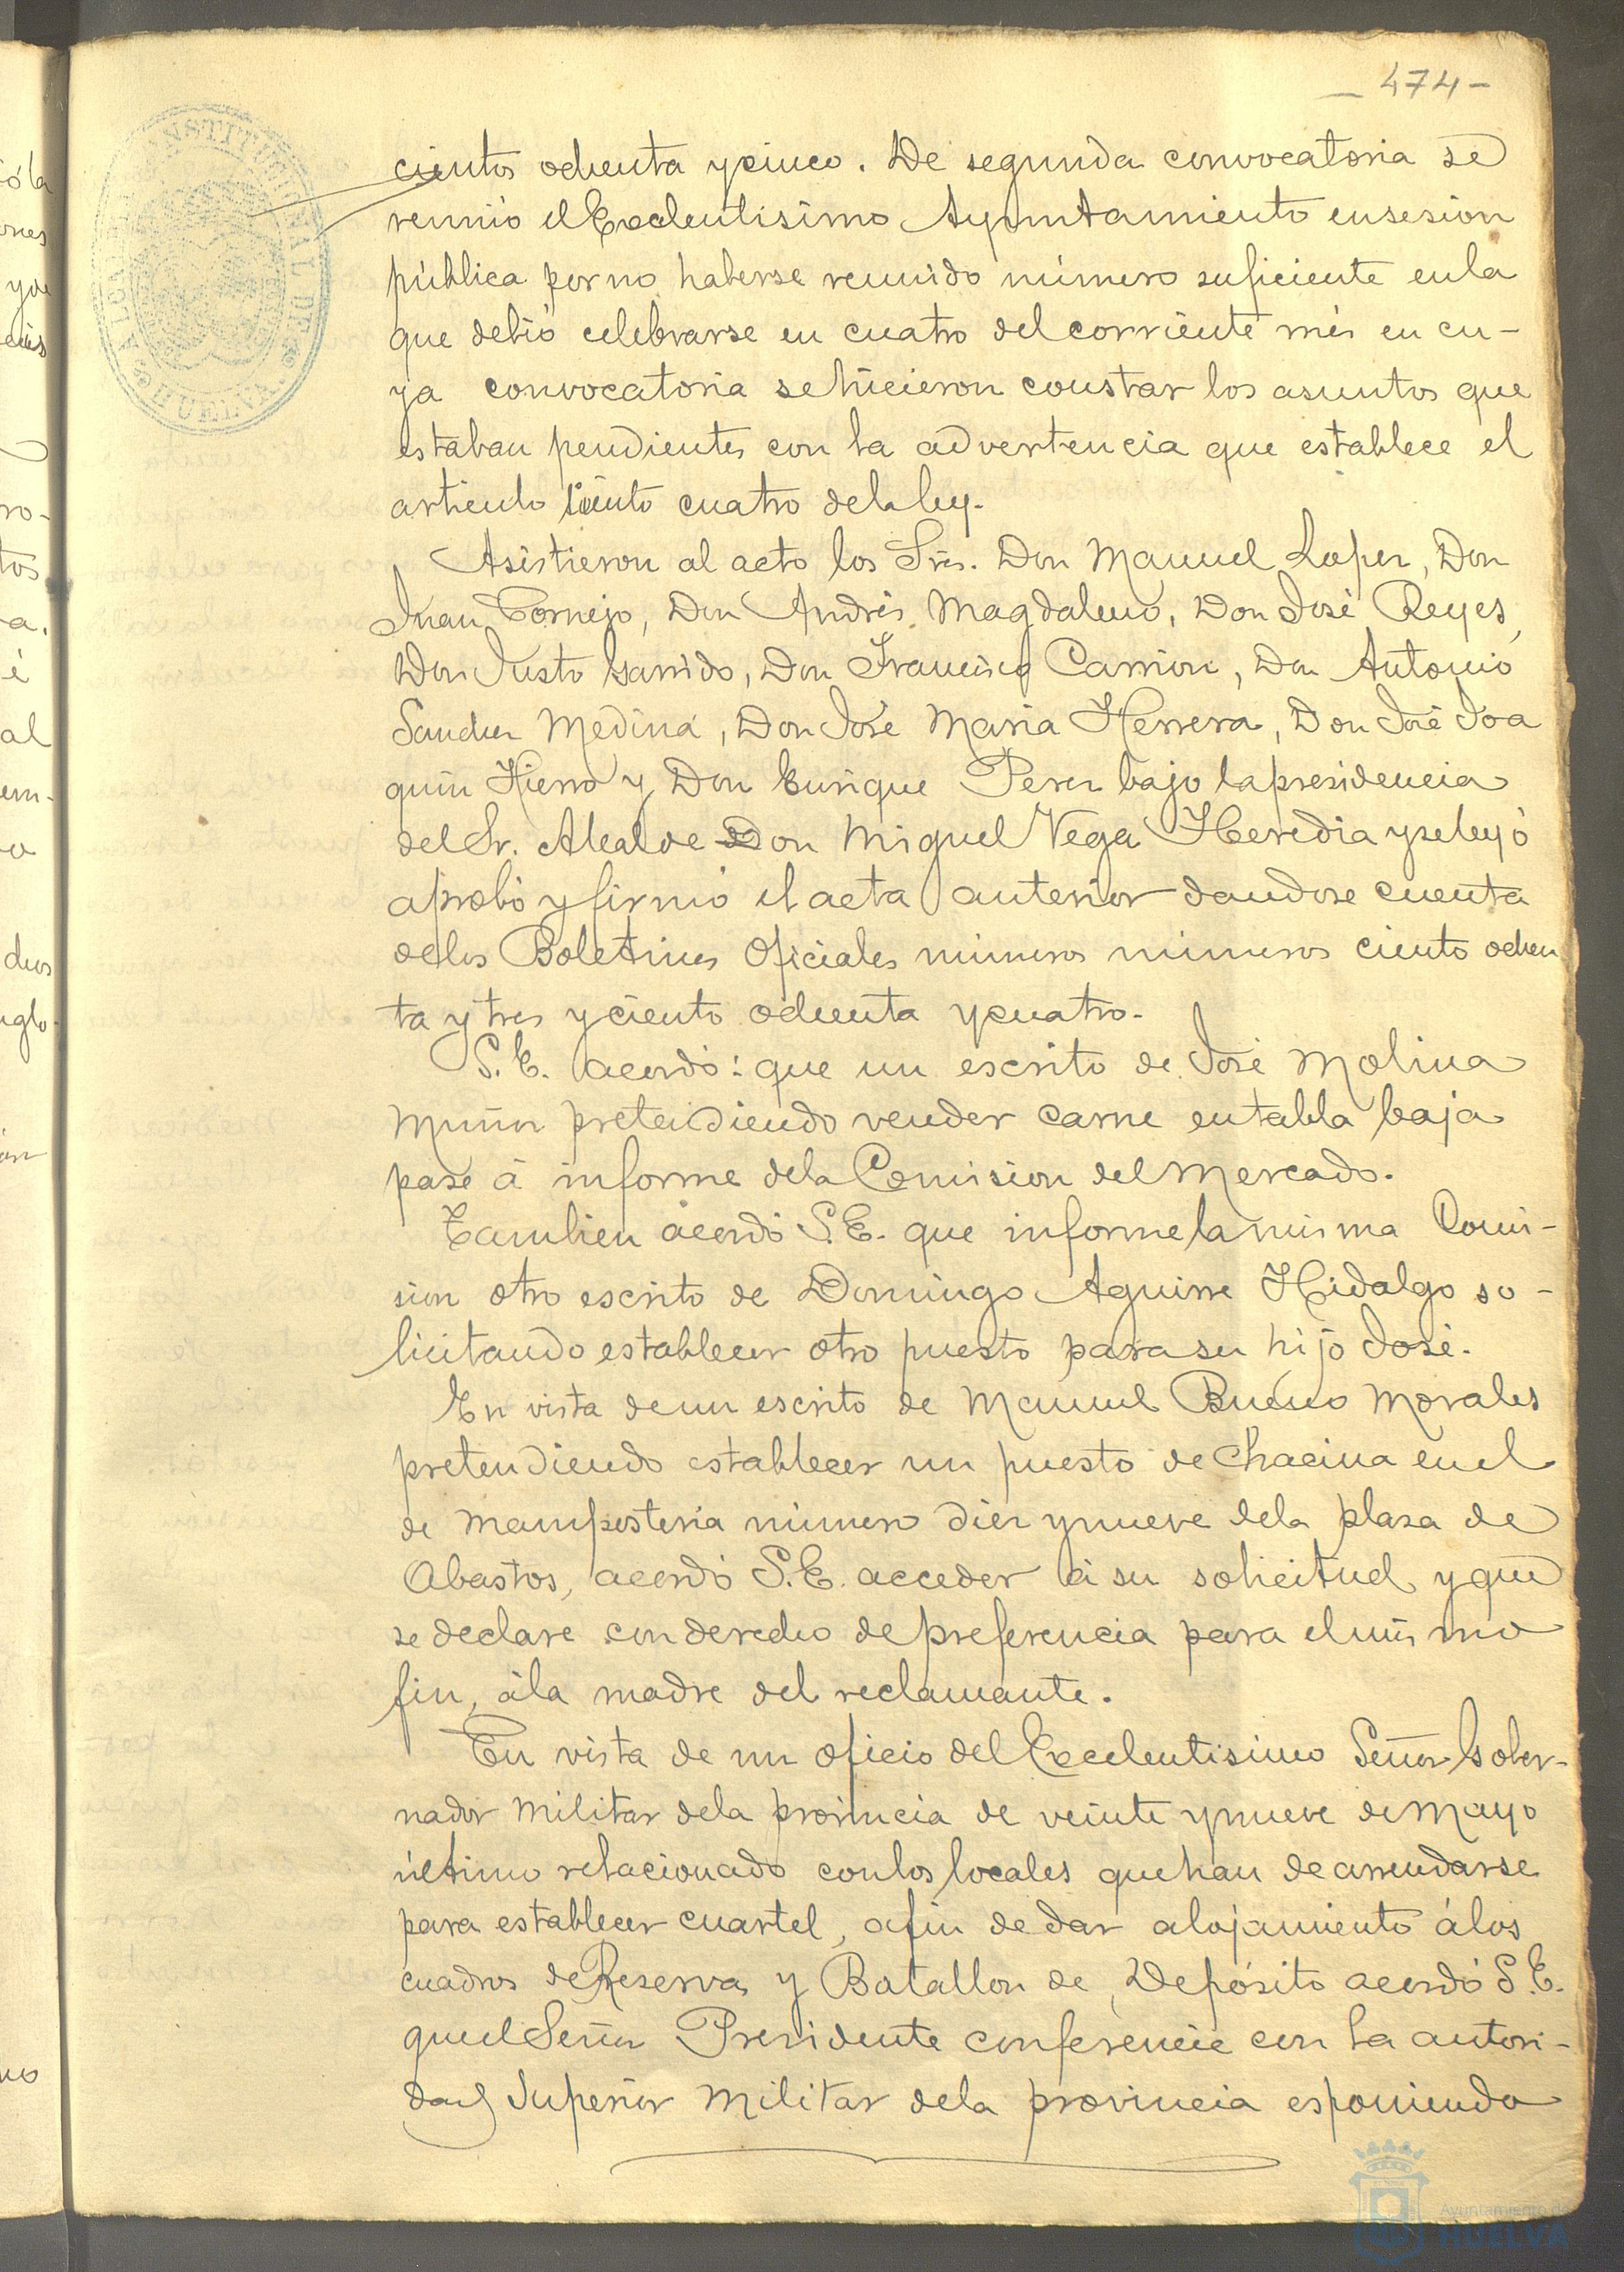 - 474 -
ALCALDIA CONSTITUCIONAL DE HUELVA
cientos ochenta y cinco. De segunda convocatoria se
reunió el Excelentisimo Ayuntamiento en sesion
pública por no haberse reunido número suficiente en la
que debió celebrarse en cuatro del corriente més en cu-
ya convocatoria se hicieron constar los asuntos que
estaban pendientes con la advertencia que establece el
articulo ciento cuatro de la ley.
Asistieron al acto los Sres. Don Manuel Lopez, Don
Juan Cornejo, Don Andrés Magdaleno, Don José Reyes,
Don Justo Garrido, Don Francisco Carrion, Don Antonio
Sanchez Medina, Don José Maria Herrera, Don José Joa
quin Hierro y Don Enrique Perez bajo la presidencia
del Sr. Alcalde Don Miguel Vega Heredia y se leyó
aprobó y firmó el acta anterior dandose cuenta
de los Boletines Oficiales números números ciento ochen
ta y tres y ciento ochenta y cuatro.
S.E. acordó: que un escrito de José Molina
Muñoz pretendiendo vender carne en tabla baja
pase á informe de la Comision del Mercado.
Tambien acordó S.E. que informe la misma Comi-
sion otro escrito de Domingo Aguirre Hidalgo so-
licitando establecer otro puesto para su hijo José.
En vista de un escrito de Manuel Bueno Morales
pretendiendo establecer un puesto de chacina en el
de mamposteria número diez y nueve de la plaza de
Abastos, acordó S.E. acceder á su solicitud y que
se declare con derecho de preferencia para el mismo
fin, á la madre del reclamante.
En vista de un oficio del Excelentisimo Señor Gober-
nador Militar de la provincia de veinte y nueve de Mayo
último relacionado con los locales que han de arrendarse
para establecer cuartel, a fin de dar alojamiento á los
cuadros de Reserva y Batallon de Depósito acordó S.E.
que el Señor Presidente conferencie con la autori-
dad Superior Militar de la provincia esponiendo
Ayuntamiento de
HUELVA